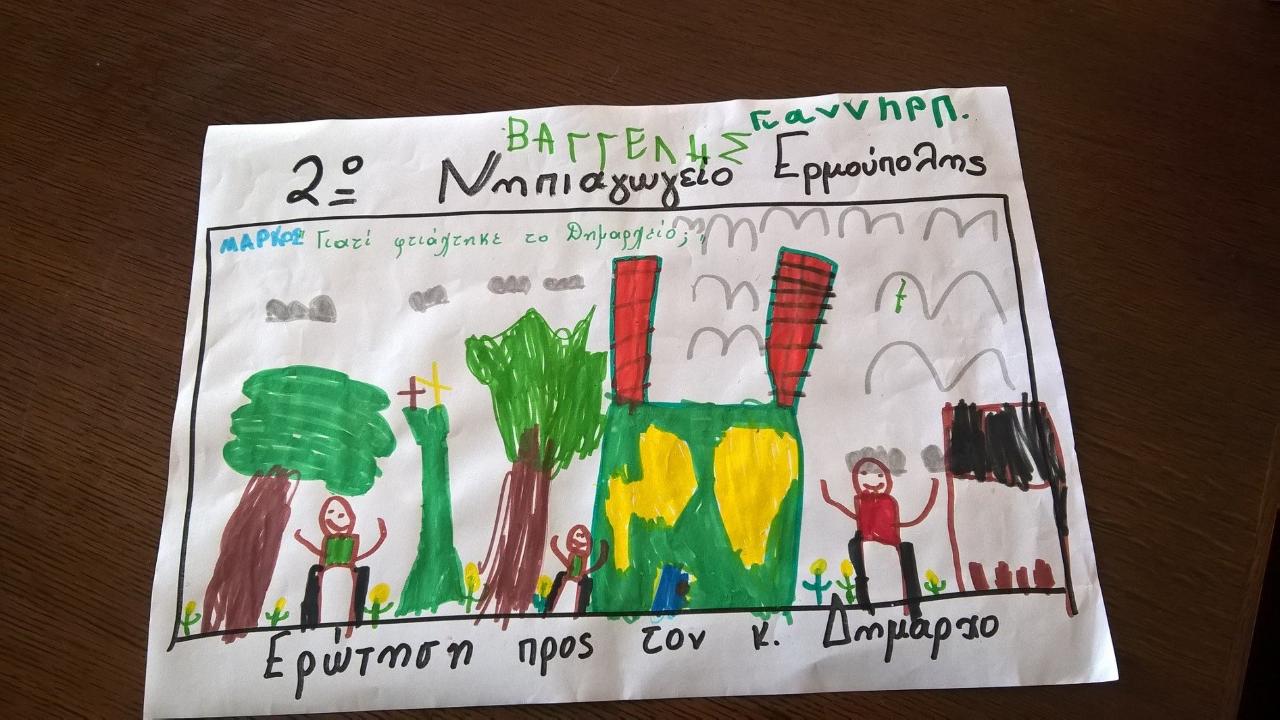 ΒΑΓΓΕΛΗΣ Γιαννηρπ.
2º Νηπιαγωγείο Ερμούπολης
ΜΑΡΚΟΣ "Γιατί φτιάχτηκε το Δημαρχείο;"
Ερώτηση προς τον κ. Δημαρχο